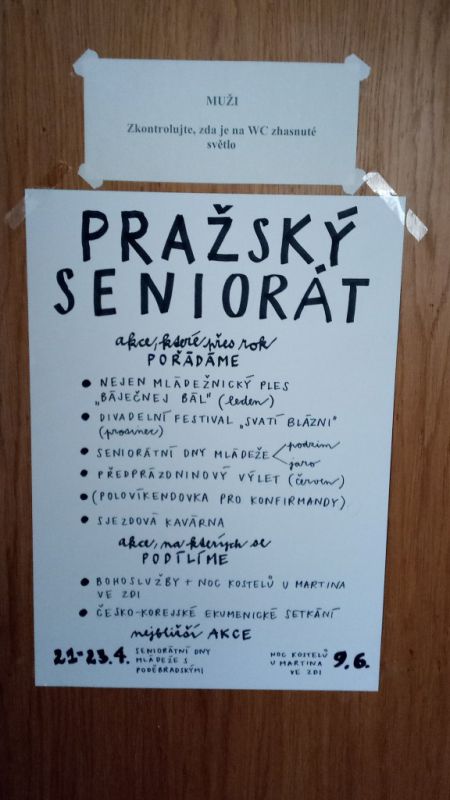 MUŽI
Zkontrolujte, zda je na WC zhasnuté
světlo
PRAŽSKÝ
SENIORÁT
akce, které přes rok
POŘÁDÁME
● NEJEN MLÁDEŽNICKÝ PLES
„BÁJEČNEJ BÁL" (leden)
● DIVADELNÍ FESTIVAL „SVATÍ BLÁZNI"
(prosinec)
● SENIORÁTNÍ DNY MLÁDEŽE < podzim
jaro
● PŘEDPRÁZDNINOVÝ VÝLET (červen)
● (POLOVÍKENDOVKA PRO KONFIRMANDY)
● SJEZDOVÁ KAVÁRNA
akce, na kterých se
PODÍLÍME
● BOHOSLUŽBY + NOC KOSTELŮ U MARTINA
VE ZDI
● ČESKO-KOREJSKÉ EKUMENICKÉ SETKÁNÍ
nejbližší AKCE
21-23.4. SENIORÁTNÍ DNY
MLÁDEŽE S
PODĚBRADSKÝMI
NOC KOSTELŮ
U MARTINA
VE ZDI
9.6.